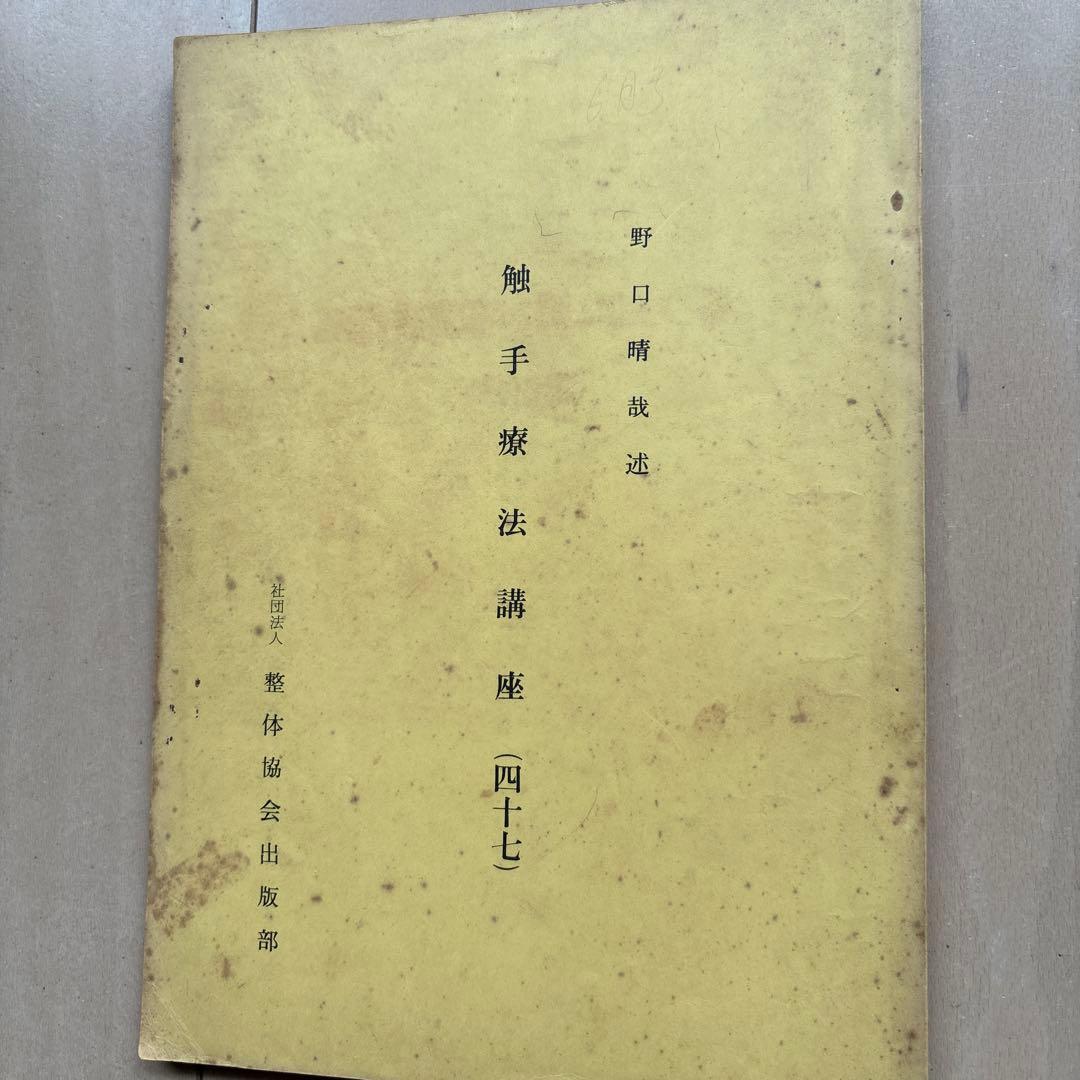 野口晴哉述
触手療法講座（四十七）
社団法人 整体協会出版部